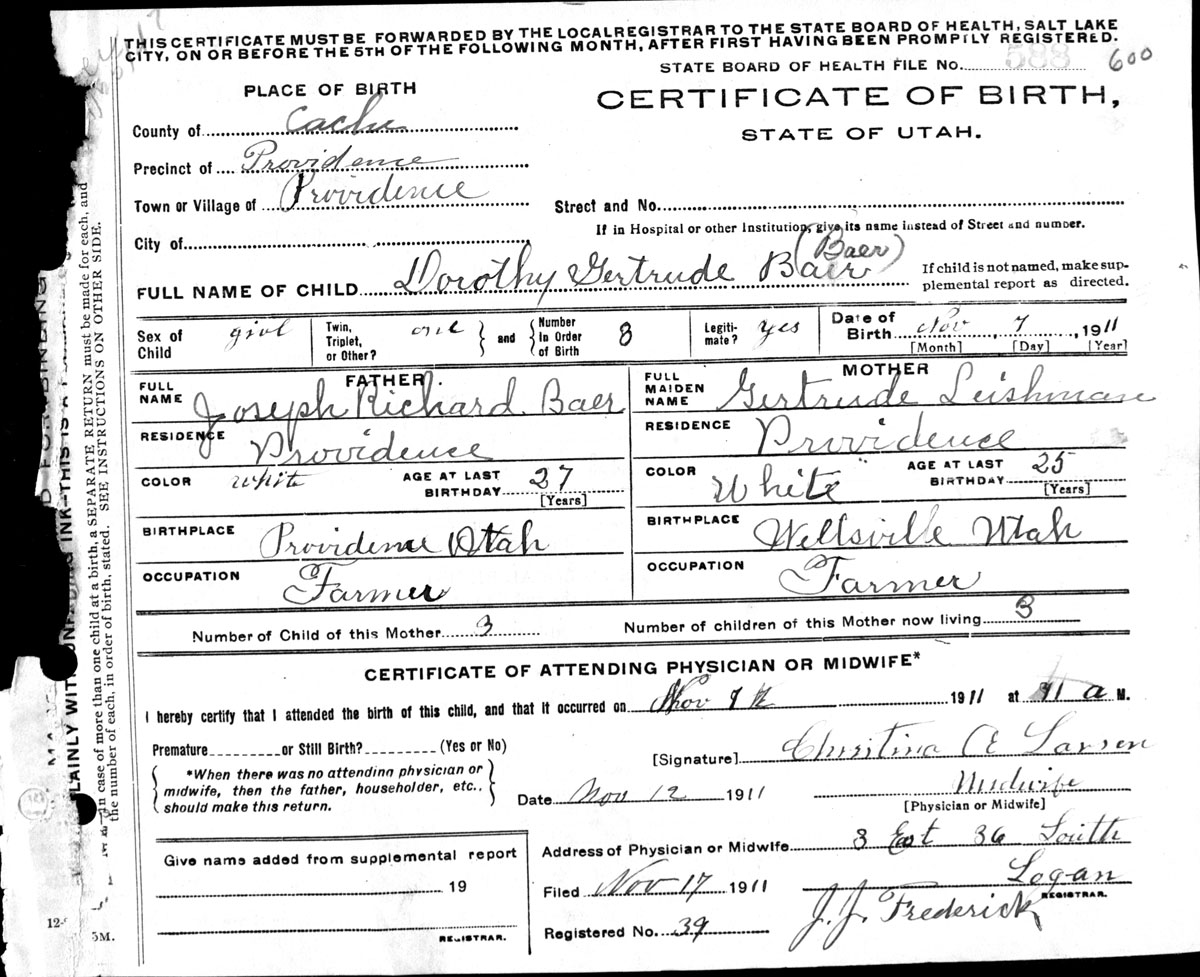 THIS CERTIFICATE MUST BE FORWARDED BY THE LOCAL REGISTRAR TO THE STATE BOARD OF HEALTH, SALT LAKE
CITY, ON OR BEFORE THE 5TH OF THE FOLLOWING MONTH, AFTER FIRST HAVING BEEN PROMPTLY REGISTERED.
STATE BOARD OF HEALTH FILE No. 588 600
PLACE OF BIRTH
CERTIFICATE OF BIRTH,
STATE OF UTAH.
County of Cache
Precinct of Providence
Town or Village of Providence
Street and No.
If in Hospital or other Institution, give its name instead of Street and number.
City of
(Baer)
FULL NAME OF CHILD Dorothy Gertrude Baer
If child is not named, make sup-
plemental report as directed.
Sex of Child girl
Twin, Triplet, or Other? one } and { Number in Order of Birth 3
Legiti-mate? yes
Date of Birth Nov 7, 1911
[Month] [Day] [Year]
FATHER.
FULL NAME Joseph Richard Baer
RESIDENCE Providence
COLOR White AGE AT LAST BIRTHDAY 27
[Years]
BIRTHPLACE Providence Utah
OCCUPATION Farmer
MOTHER
FULL MAIDEN NAME Gertrude Leishman
RESIDENCE Providence
COLOR White AGE AT LAST BIRTHDAY 25
[Years]
BIRTHPLACE Wellsville Utah
OCCUPATION Farmer
Number of Child of this Mother 3 Number of children of this Mother now living 3
CERTIFICATE OF ATTENDING PHYSICIAN OR MIDWIFE*
I hereby certify that I attended the birth of this child, and that it occurred on Nov 7 1911 at 11 a M.
Premature or Still Birth? (Yes or No)
*When there was no attending physician or
midwife, then the father, householder, etc.,
should make this return.
[Signature] Christina E Larsen
Date Nov 12 1911 Midwife
[Physician or Midwife]
Address of Physician or Midwife 3 East 36 South
Logan
Filed Nov 17 1911 J. J. Frederick
REGISTRAR.
Registered No. 39
Give name added from supplemental report
19
REGISTRAR.
FOR BINDING
PLAINLY WITH UNFADING INK—THIS IS A
In case of more than one child at a birth, a SEPARATE RETURN must be made for each, and
the number of each, in order of birth, stated. SEE INSTRUCTIONS ON OTHER SIDE.
5M.